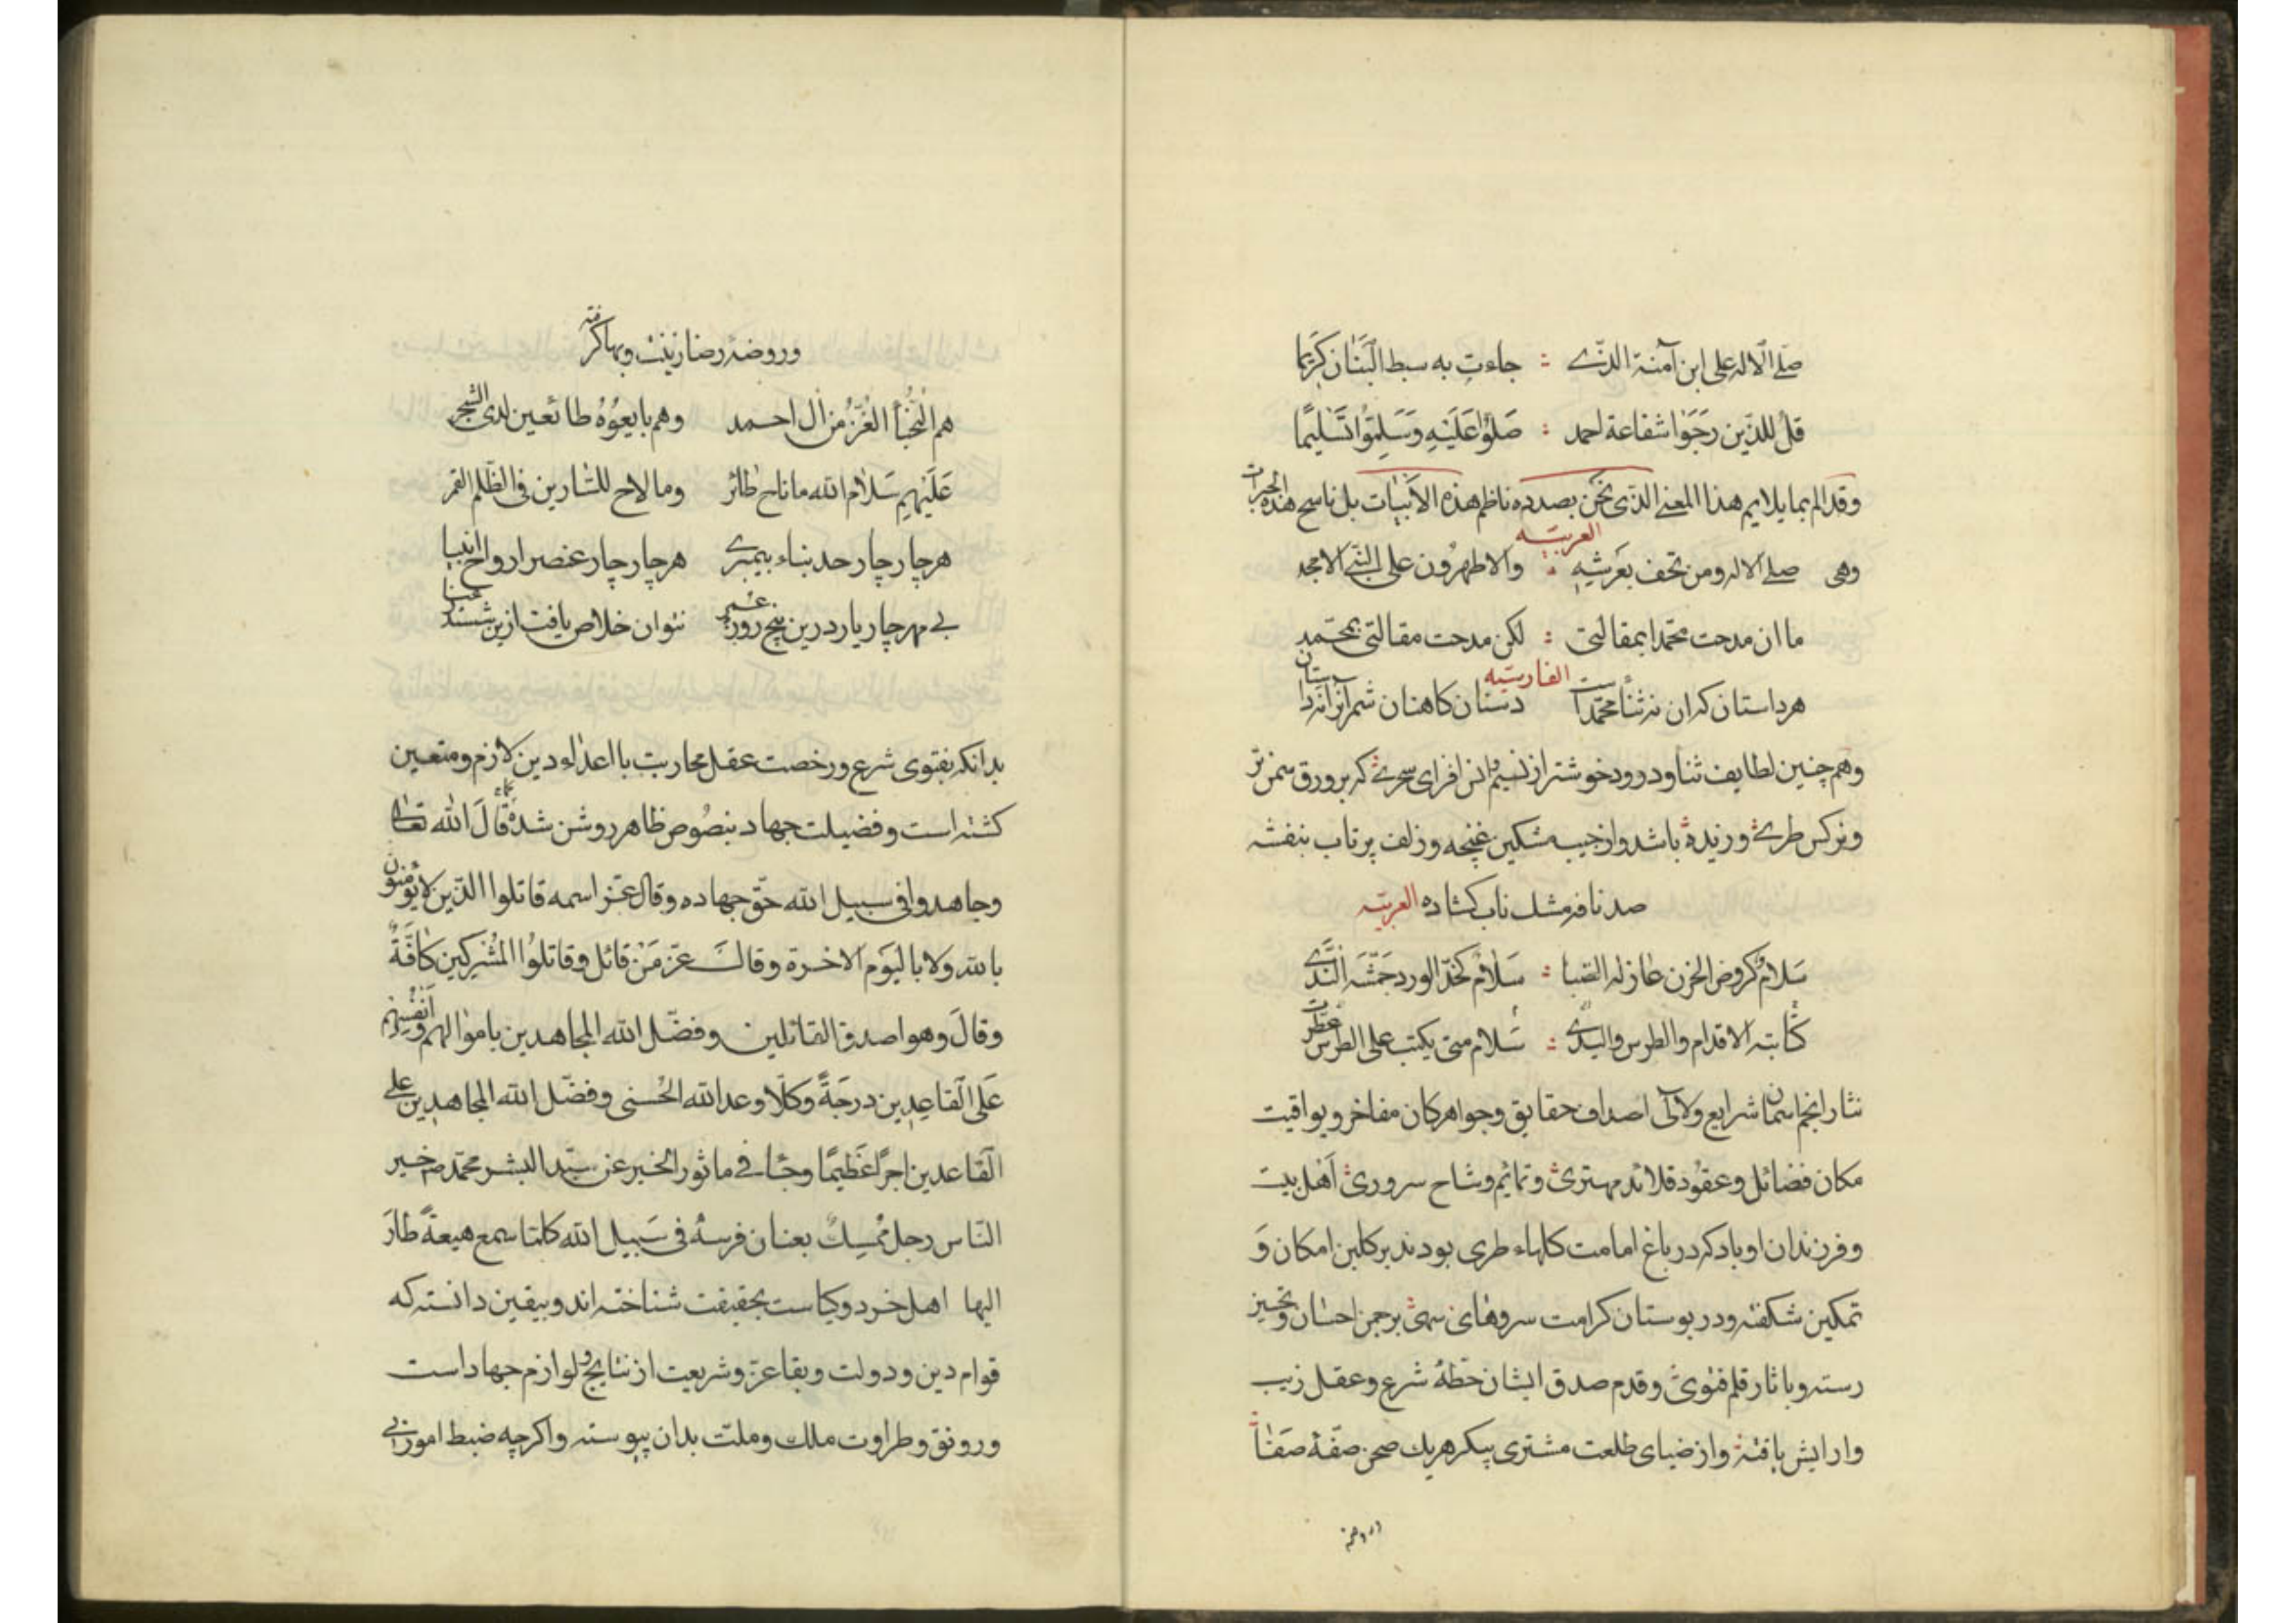 صلی الاله علی ابن آمنة الذی : جاءت به سبط البنان کریما
قل للذین رجوا شفاعة احمد : صلوا علیه وسلموا تسلیما
وقد الم بما یلایم هذا المعنی الذی نحن بصدده ناظم هذه الابیات بل ناسج هذه الحبرات
العربیه
وهی صلی الاله ومن یحف بعرشه : والاطهرون علی النبی الامجد
ما ان مدحت محمدا بمقالتی : لکن مدحت مقالتی بمحمد
الفارسیه
هر داستان که ان نه ثنأ محمد است دستان کاهنان شمر آنرا نه داستان
وهم چنین لطایف ثنا ودرود خوشتر از نسیم انس افزای سحری که بر ورق سمن تر
ونرکس طری وزیده باشد واز جیب مشکین غنچه وزلف پر تاب بنفشه
صد نافه مشک ناب کشاده العربیه
سلام کروض الحزن غازله الصبا : سلام کخد الورد جمشه الندی
کثابته الاقدام والطرس والیدی : سلام متی یکتب علی الطرس عطرت
نثار انجم آسمان شرایع ولآلی اصداف حقایق وجواهر کان مفاخر ویواقیت
مکان فضائل وعقود قلائد مهتری وتمائم وشاح سروری اهل بیت
وفرزندان او باد که در باغ امامت کلهاء طری بودند بر کلبن امکان و
تمکین شکفته ودر بوستان کرامت سروهای سهی بر چمن احسان و
رسته وباثار قلم فتوی وقدم صدق ایشان خطهٔ شرع وعقل زیب
وارایش یافته واز ضیای طلعت مشتری پیکر هریک صحن صفهٔ صفا
وروضه
وروضهٔ رضا زینت وبها کرفته
هم النجبأ الغر من ال احمد وهم بایعوه طائعین لدی الشجر
علیهم سلام الله ما ناح طائر وما لاح للسارین فی الظلم القمر
هر چار چار حد بناء پیمبری هر چار چار عنصر ارواح انبیا
بی مهر چار یار درین پنج روز عمر نتوان خلاص یافت ازین ششدر عنا
بدانکه بفتوی شرع ورخصت عقل محاربت با اعداء دین لازم ومتعین
کشته است وفضیلت جهاد بنصوص ظاهر روشن شده کما قال الله تعالی
وجاهدوا فی سبیل الله حق جهاده وقال عز اسمه قاتلوا الذین لا یؤمنون
بالله ولا بالیوم الاخرة وقال عز من قائل وقاتلوا المشرکین کافة
وقال وهو اصدق القائلین وفضل الله المجاهدین باموالهم وانفسهم
علی القاعدین درجة وکلا وعد الله الحسنی وفضل الله المجاهدین علی
القاعدین اجرا عظیما وجأ فی ماثور الخبر عن سید البشر محمد ص خیر
الناس رجل ممسک بعنان فرسه فی سبیل الله کلما سمع هیعة طار
الیها اهل خرد وکیاست بحقیقت شناخته اند وبیقین دانسته که
قوام دین ودولت وبقا عز وشریعت از نتایج ولوازم جهاد است
ورونق وطراوت ملک وملت بدان پیوسته واکرچه ضبط امور بی